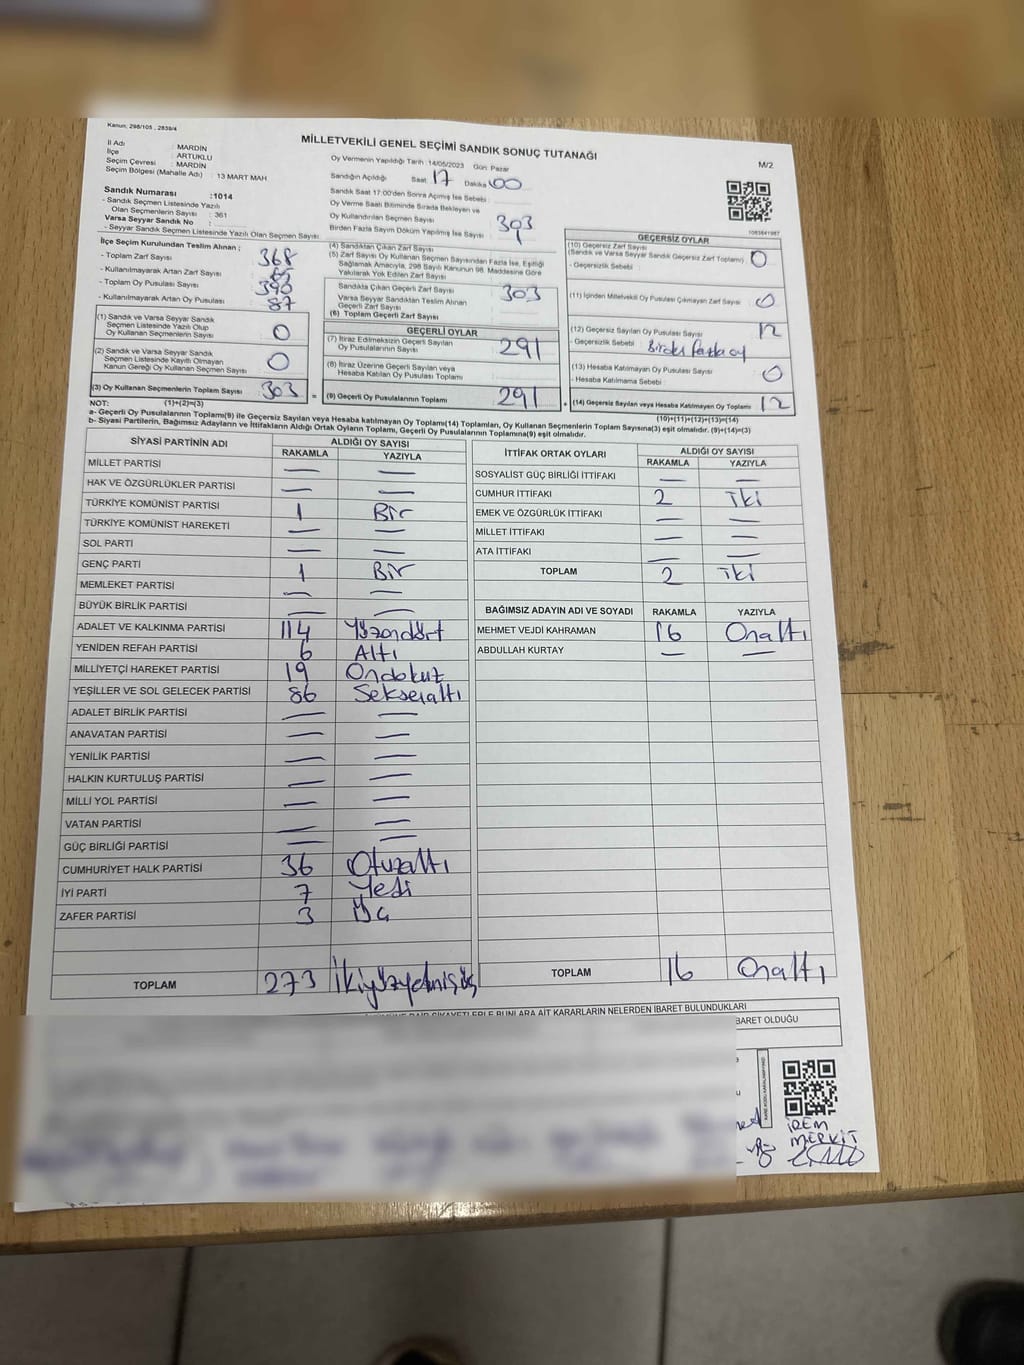 Kanun: 298/105 , 2839/4
MİLLETVEKİLİ GENEL SEÇİMİ SANDIK SONUÇ TUTANAĞI
M/2
İl Adı : MARDİN
İlçe : ARTUKLU
Seçim Çevresi : MARDİN
Seçim Bölgesi (Mahalle Adı) : 13 MART MAH
Oy Vermenin Yapıldığı Tarih :14/05/2023 Gün: Pazar
Sandığın Açıldığı Saat 17 Dakika 00
Sandık Saat 17:00'den Sonra Açılmış İse Sebebi :
Oy Verme Saati Bitiminde Sırada Bekleyen ve
Oy Kullandırılan Seçmen Sayısı 303
Birden Fazla Sayım Döküm Yapılmış İse Sayısı : 1
Sandık Numarası :1014
- Sandık Seçmen Listesinde Yazılı
Olan Seçmenlerin Sayısı : 361
Varsa Seyyar Sandık No :
- Seyyar Sandık Seçmen Listesinde Yazılı Olan Seçmen Sayısı :
İlçe Seçim Kurulundan Teslim Alınan ;
- Toplam Zarf Sayısı : 368
- Kullanılmayarak Artan Zarf Sayısı : 65
- Toplam Oy Pusulası Sayısı : 390
- Kullanılmayarak Artan Oy Pusulası : 87
(1) Sandık ve Varsa Seyyar Sandık
Seçmen Listesinde Yazılı Olup
Oy Kullanan Seçmenlerin Sayısı 0
(2) Sandık ve Varsa Seyyar Sandık
Seçmen Listesinde Kayıtlı Olmayan
Kanun Gereği Oy Kullanan Seçmen Sayısı 0
(3) Oy Kullanan Seçmenlerin Toplam Sayısı 303
(4) Sandıktan Çıkan Zarf Sayısı
(5) Zarf Sayısı Oy Kullanan Seçmen Sayısından Fazla İse, Eşitliği
Sağlamak Amacıyla, 298 Sayılı Kanunun 98. Maddesine Göre
Yakılarak Yok Edilen Zarf Sayısı
Sandıkta Çıkan Geçerli Zarf Sayısı 303
Varsa Seyyar Sandıktan Teslim Alınan
Geçerli Zarf Sayısı
(6) Toplam Geçerli Zarf Sayısı
GEÇERLİ OYLAR
(7) İtiraz Edilmeksizin Geçerli Sayılan
Oy Pusulalarının Sayısı 291
(8) İtiraz Üzerine Geçerli Sayılan veya
Hesaba Katılan Oy Pusulası Toplamı
= (9) Geçerli Oy Pusulalarının Toplamı 291
1083641987
GEÇERSİZ OYLAR
(10) Geçersiz Zarf Sayısı
(Sandık ve Varsa Seyyar Sandık Geçersiz Zarf Toplamı) : 0
- Geçersizlik Sebebi :
(11) İçinden Milletvekili Oy Pusulası Çıkmayan Zarf Sayısı : 0
(12) Geçersiz Sayılan Oy Pusulası Sayısı : 12
- Geçersizlik Sebebi : Birden fazla oy
(13) Hesaba Katılmayan Oy Pusulası Sayısı : 0
- Hesaba Katılmama Sebebi :
+ (14) Geçersiz Sayılan veya Hesaba Katılmayan Oy Toplamı 12
NOT: (1)+(2)=(3) (10)+(11)+(12)+(13)=(14)
a- Geçerli Oy Pusulalarının Toplamı(9) ile Geçersiz Sayılan veya Hesaba katılmayan Oy Toplamı(14) Toplamları, Oy Kullanan Seçmenlerin Toplam Sayısına(3) eşit olmalıdır. (9)+(14)=(3)
b- Siyasi Partilerin, Bağımsız Adayların ve İttifakların Aldığı Ortak Oyların Toplamı, Geçerli Oy Pusulalarının Toplamına(9) eşit olmalıdır.
SİYASİ PARTİNİN ADI ALDIĞI OY SAYISI
RAKAMLA YAZIYLA
MİLLET PARTİSI — —
HAK VE ÖZGÜRLÜKLER PARTİSİ — —
TÜRKİYE KOMÜNİST PARTİSİ 1 Bir
TÜRKİYE KOMÜNİST HAREKETİ — —
SOL PARTİ — —
GENÇ PARTİ 1 Bir
MEMLEKET PARTİSİ — —
BÜYÜK BİRLİK PARTİSİ — —
ADALET VE KALKINMA PARTİSİ 114 Yüzondört
YENİDEN REFAH PARTİSİ 6 Altı
MİLLİYETÇİ HAREKET PARTİSİ 19 Ondokuz
YEŞİLLER VE SOL GELECEK PARTİSİ 86 Seksenaltı
ADALET BİRLİK PARTİSİ — —
ANAVATAN PARTİSİ — —
YENİLİK PARTİSİ — —
HALKIN KURTULUŞ PARTİSİ — —
MİLLİ YOL PARTİSİ — —
VATAN PARTİSİ — —
GÜÇ BİRLİĞİ PARTİSİ — —
CUMHURİYET HALK PARTİSİ 36 Otuzaltı
İYİ PARTİ 7 Yedi
ZAFER PARTİSİ 3 Üç
TOPLAM 273 İkiyüzyetmişüç
İTTİFAK ORTAK OYLARI ALDIĞI OY SAYISI
RAKAMLA YAZIYLA
SOSYALİST GÜÇ BİRLİĞİ İTTİFAKI — —
CUMHUR İTTİFAKI 2 iki
EMEK VE ÖZGÜRLÜK İTTİFAKI — —
MİLLET İTTİFAKI — —
ATA İTTİFAKI — —
TOPLAM 2 iki
BAĞIMSIZ ADAYIN ADI VE SOYADI RAKAMLA YAZIYLA
MEHMET VEJDİ KAHRAMAN 16 Onaltı
ABDULLAH KURTAY — —
TOPLAM 16 Onaltı
ŞİKAYETLERLE BUNLARA AİT KARARLARIN NELERDEN İBARET BULUNDUKLARI
BARET OLDUĞU
İREM
MERKİT